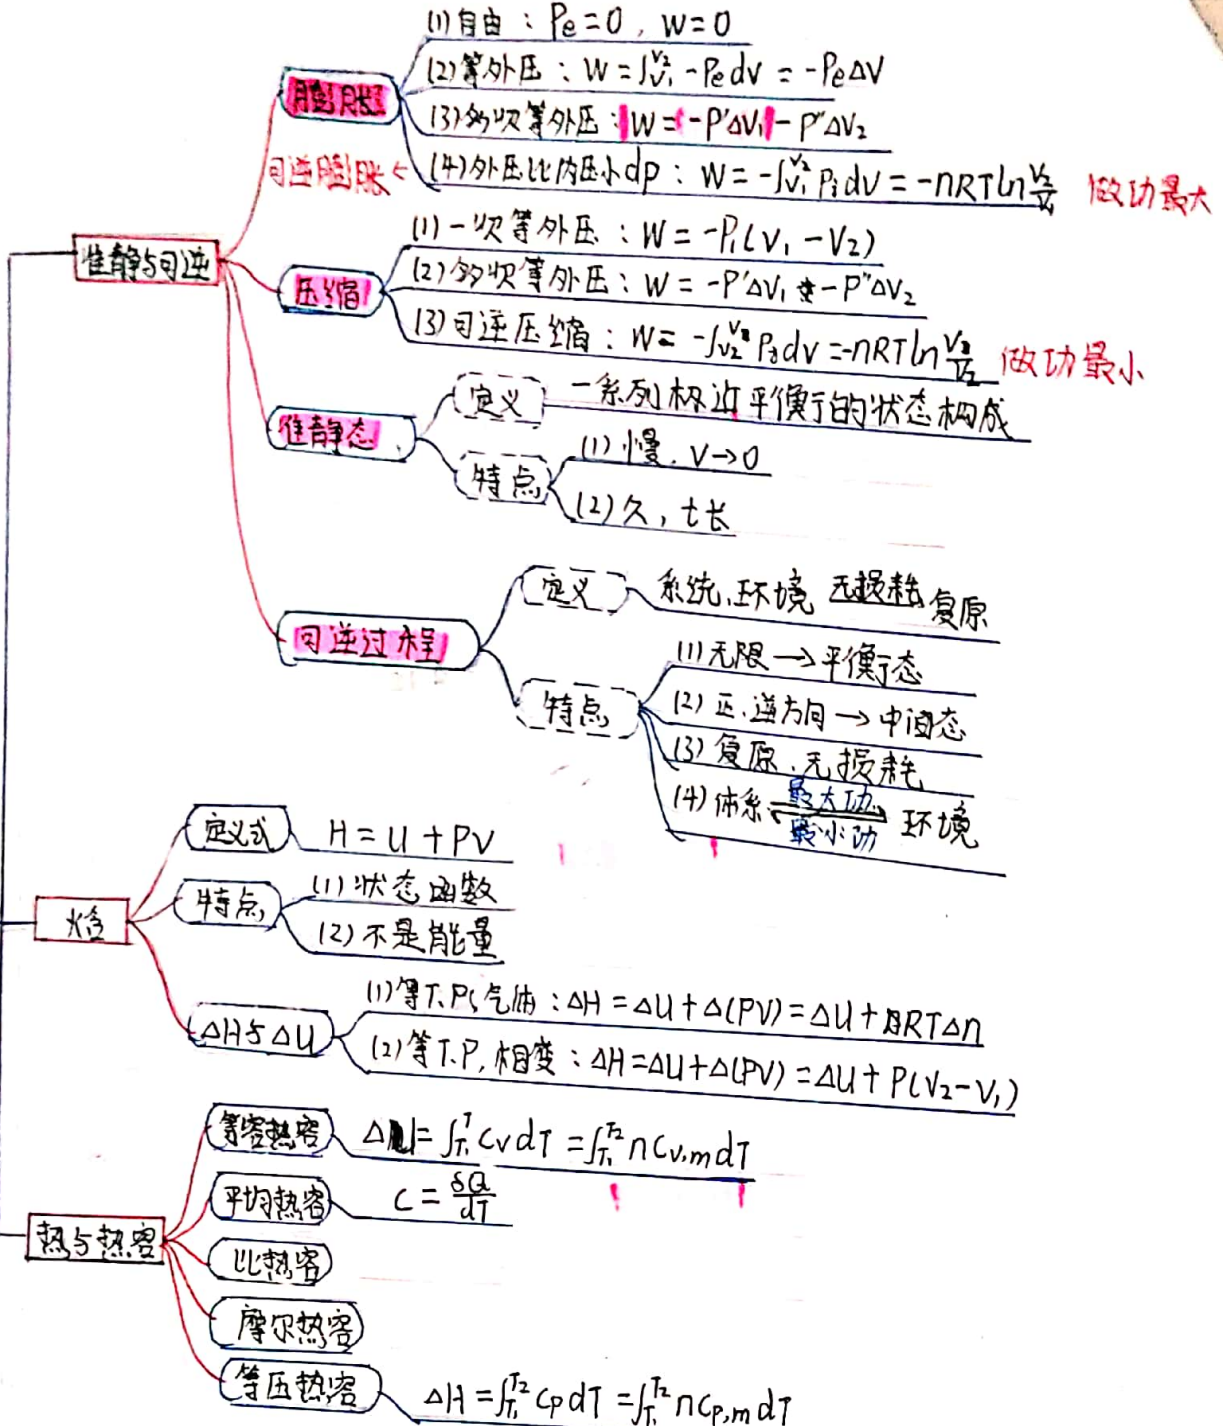 准静与可逆
膨胀
(1) 自由：Pe=0，W=0
(2) 等外压：W=∫V₁V₂ -Pe dV = -PeΔV
(3) 多次等外压：W=-P'ΔV₁ - P"ΔV₂
可逆膨胀<
(4) 外压比内压小dp：W=-∫V₁V₂ Pi dV = -nRTln V₂/V₁ 做功最大
压缩
(1) 一次等外压：W=-P₁(V₁-V₂)
(2) 多次等外压：W=-P'ΔV₁ -P"ΔV₂
(3) 可逆压缩：W= -∫ Pi dV = -nRTln 做功最小
准静态
定义 一系列极近平衡的状态构成
特点
(1) 慢. V→0
(2) 久，t长
可逆过程
定义 系统、环境 无损耗 复原
特点
(1) 无限→平衡态
(2) 正、逆方向→中间态
(3) 复原、无损耗
(4) 体系 最大功 最小功 环境
焓
定义式 H=U+PV
特点
(1) 状态函数
(2) 不是能量
ΔH与ΔU
(1) 等T.P，气体：ΔH=ΔU+Δ(PV)=ΔU+RTΔn
(2) 等T.P，相变：ΔH=ΔU+Δ(PV)=ΔU+P(V₂-V₁)
热与热容
等容热容 ΔU=∫T₁T CvdT=∫T₁T₂ nCv,mdT
平均热容 C=δQ/dT
比热容
摩尔热容
等压热容 ΔH=∫T₁T₂ CpdT=∫T₁T₂ nCp,mdT